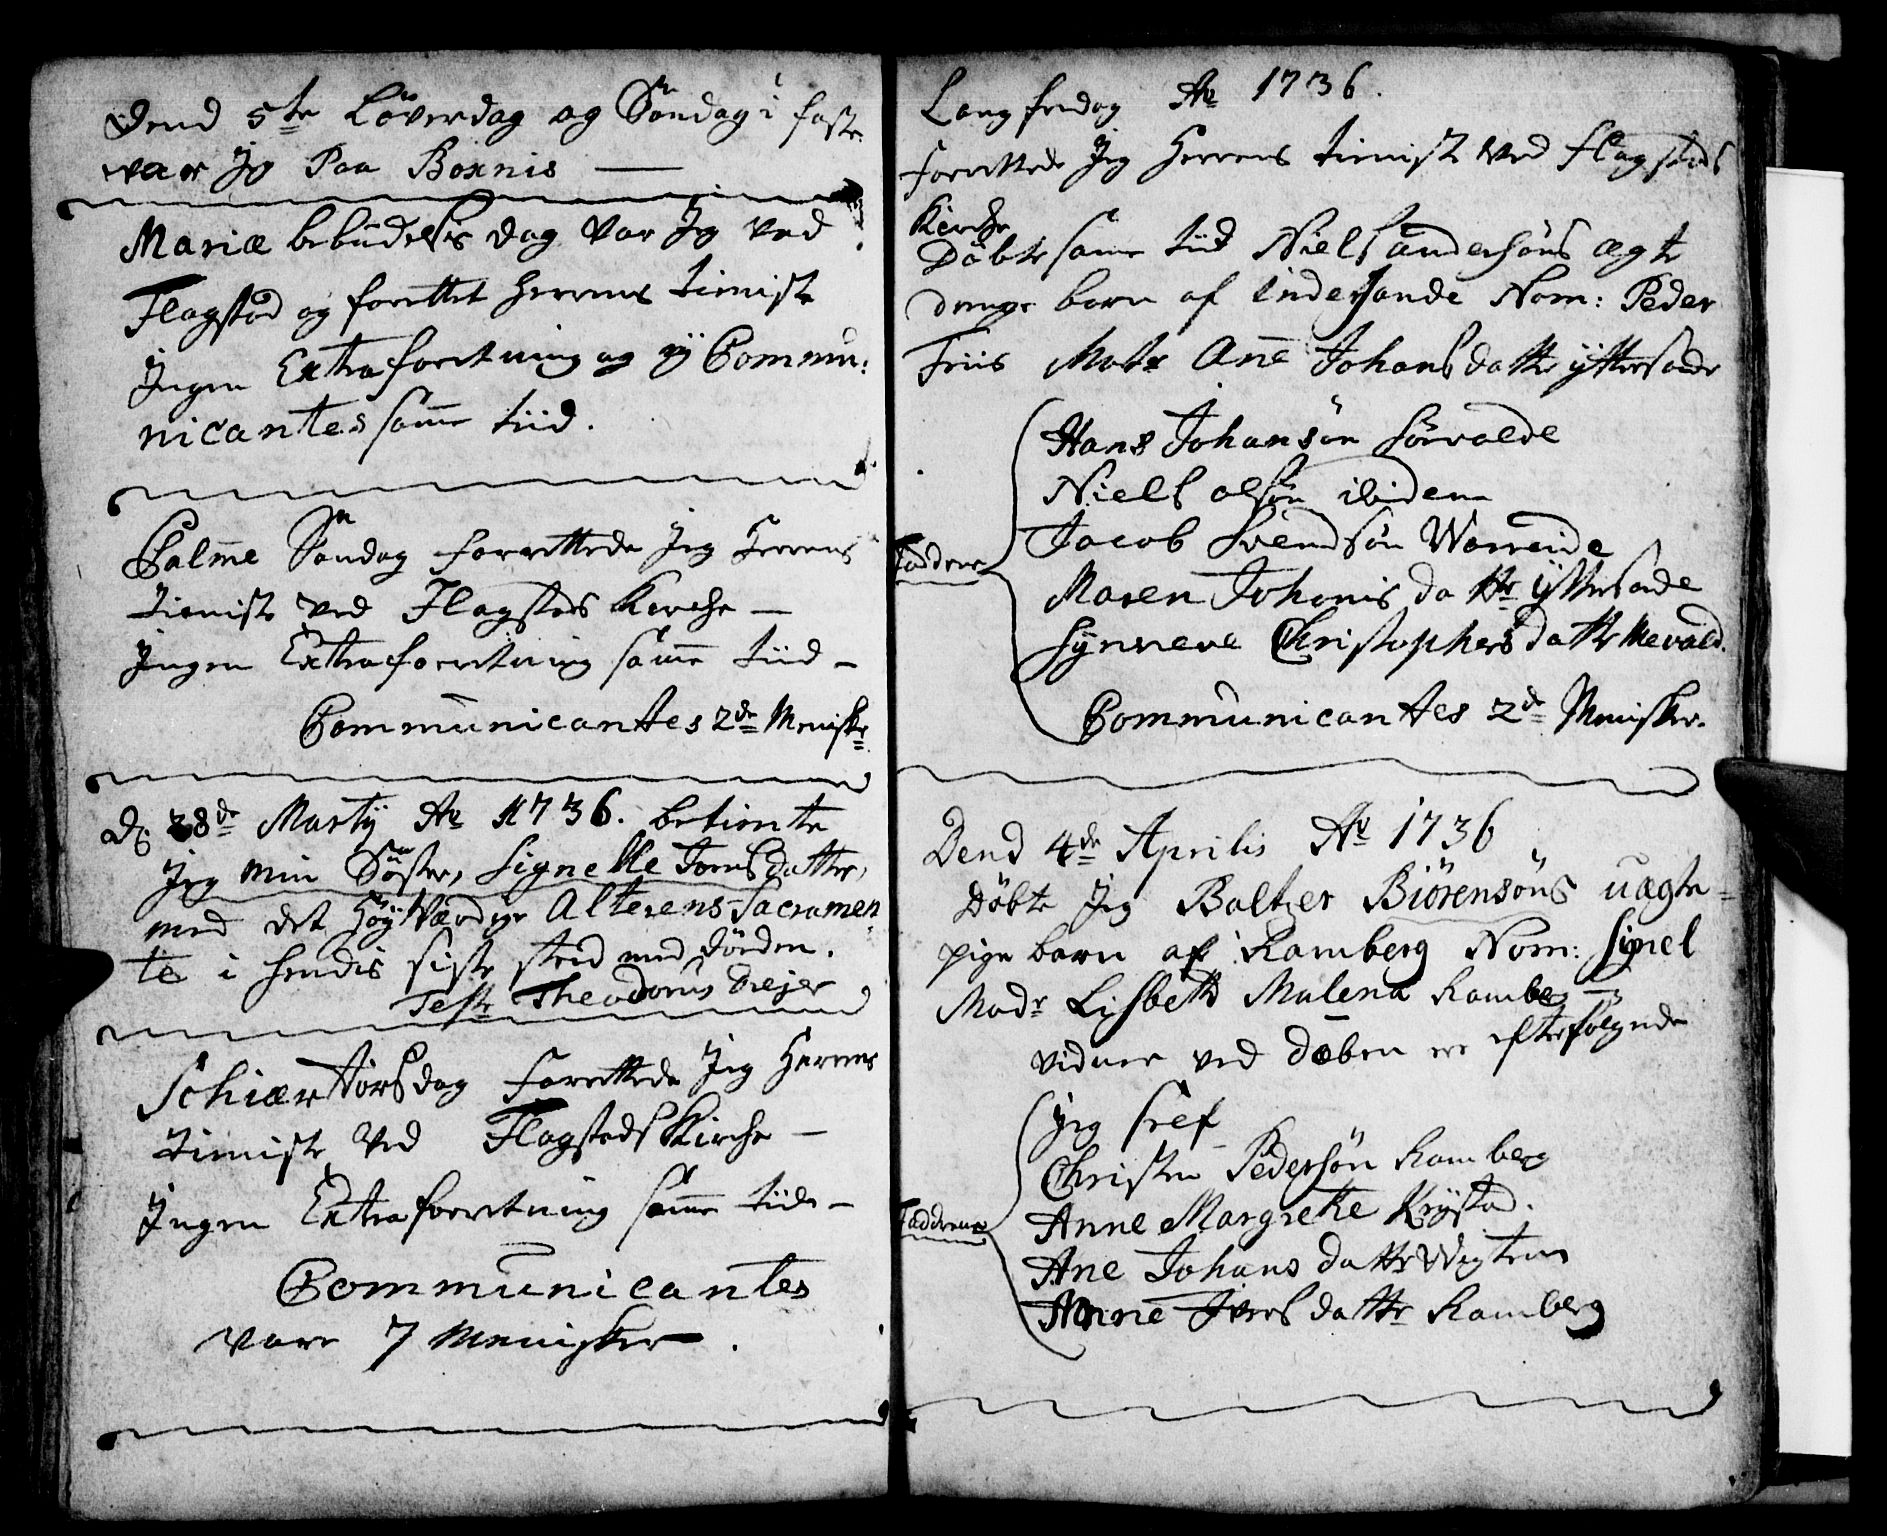 Dend 5te Löverdag og Söndag i faste
var Jg Paa Boxnis —
Mariæ bebudelses dag var Jg ved
Flagstad og forettet Herrens tieniste
Ingen Extraforetning og ÿ Commu:
nicantes samme tiid.
Palme Söndag forrettede Jeg Herrens
tieniste ved Flagsteds Kirche —
Ingen Extraforetning samme tiid —
Communicantes 2de Menisker
D: 28de Martÿ Ao 1736. betiente
Jeg min Söster, Signelle Tomsdatter,
med det Höÿ Værdige Alterens Sacramen
te i hendis siste sted med döden.
Test Theodorus Treÿer
Schiærtorsdag forettede Jeg Herrens
tieniste ved Flagsteds Kirche —
Ingen Extraforretning samme tiide —
Communicantes
vare 7 Menisker.
Langfredag Ao 1736.
forrettede Jeg Herrens tieniste ved Flagsteds
Kirche
Döbte same tid Niels andersöns ægte
drenge barn af indersande Nom: Peder
Friis Moder Ane Johansdatter ÿttersande
Hans Johansön Sörvalde
Niels olsön ibidem
Jacob Svendsön Warreide
Faddere
Maren Johanis datter ÿttersande
Synneve Christophersdatter Nevald.
Communicantes 2de Menisker.
Dend 4de Aprilis Ao 1736
Döbte Jeg Baltzer Biörensöns uægte
pige barn af Ramberg Nom: Signel
Moder Lisbeth Malena Ramberg —
vidner ved daben ere efterfölgende
Jeg sref
Christen Pedersön Ramberg
Faddere
Anne Margrete Krÿstad.
Ane Johans datter Vigten
Anne Iversdatter Ramberg